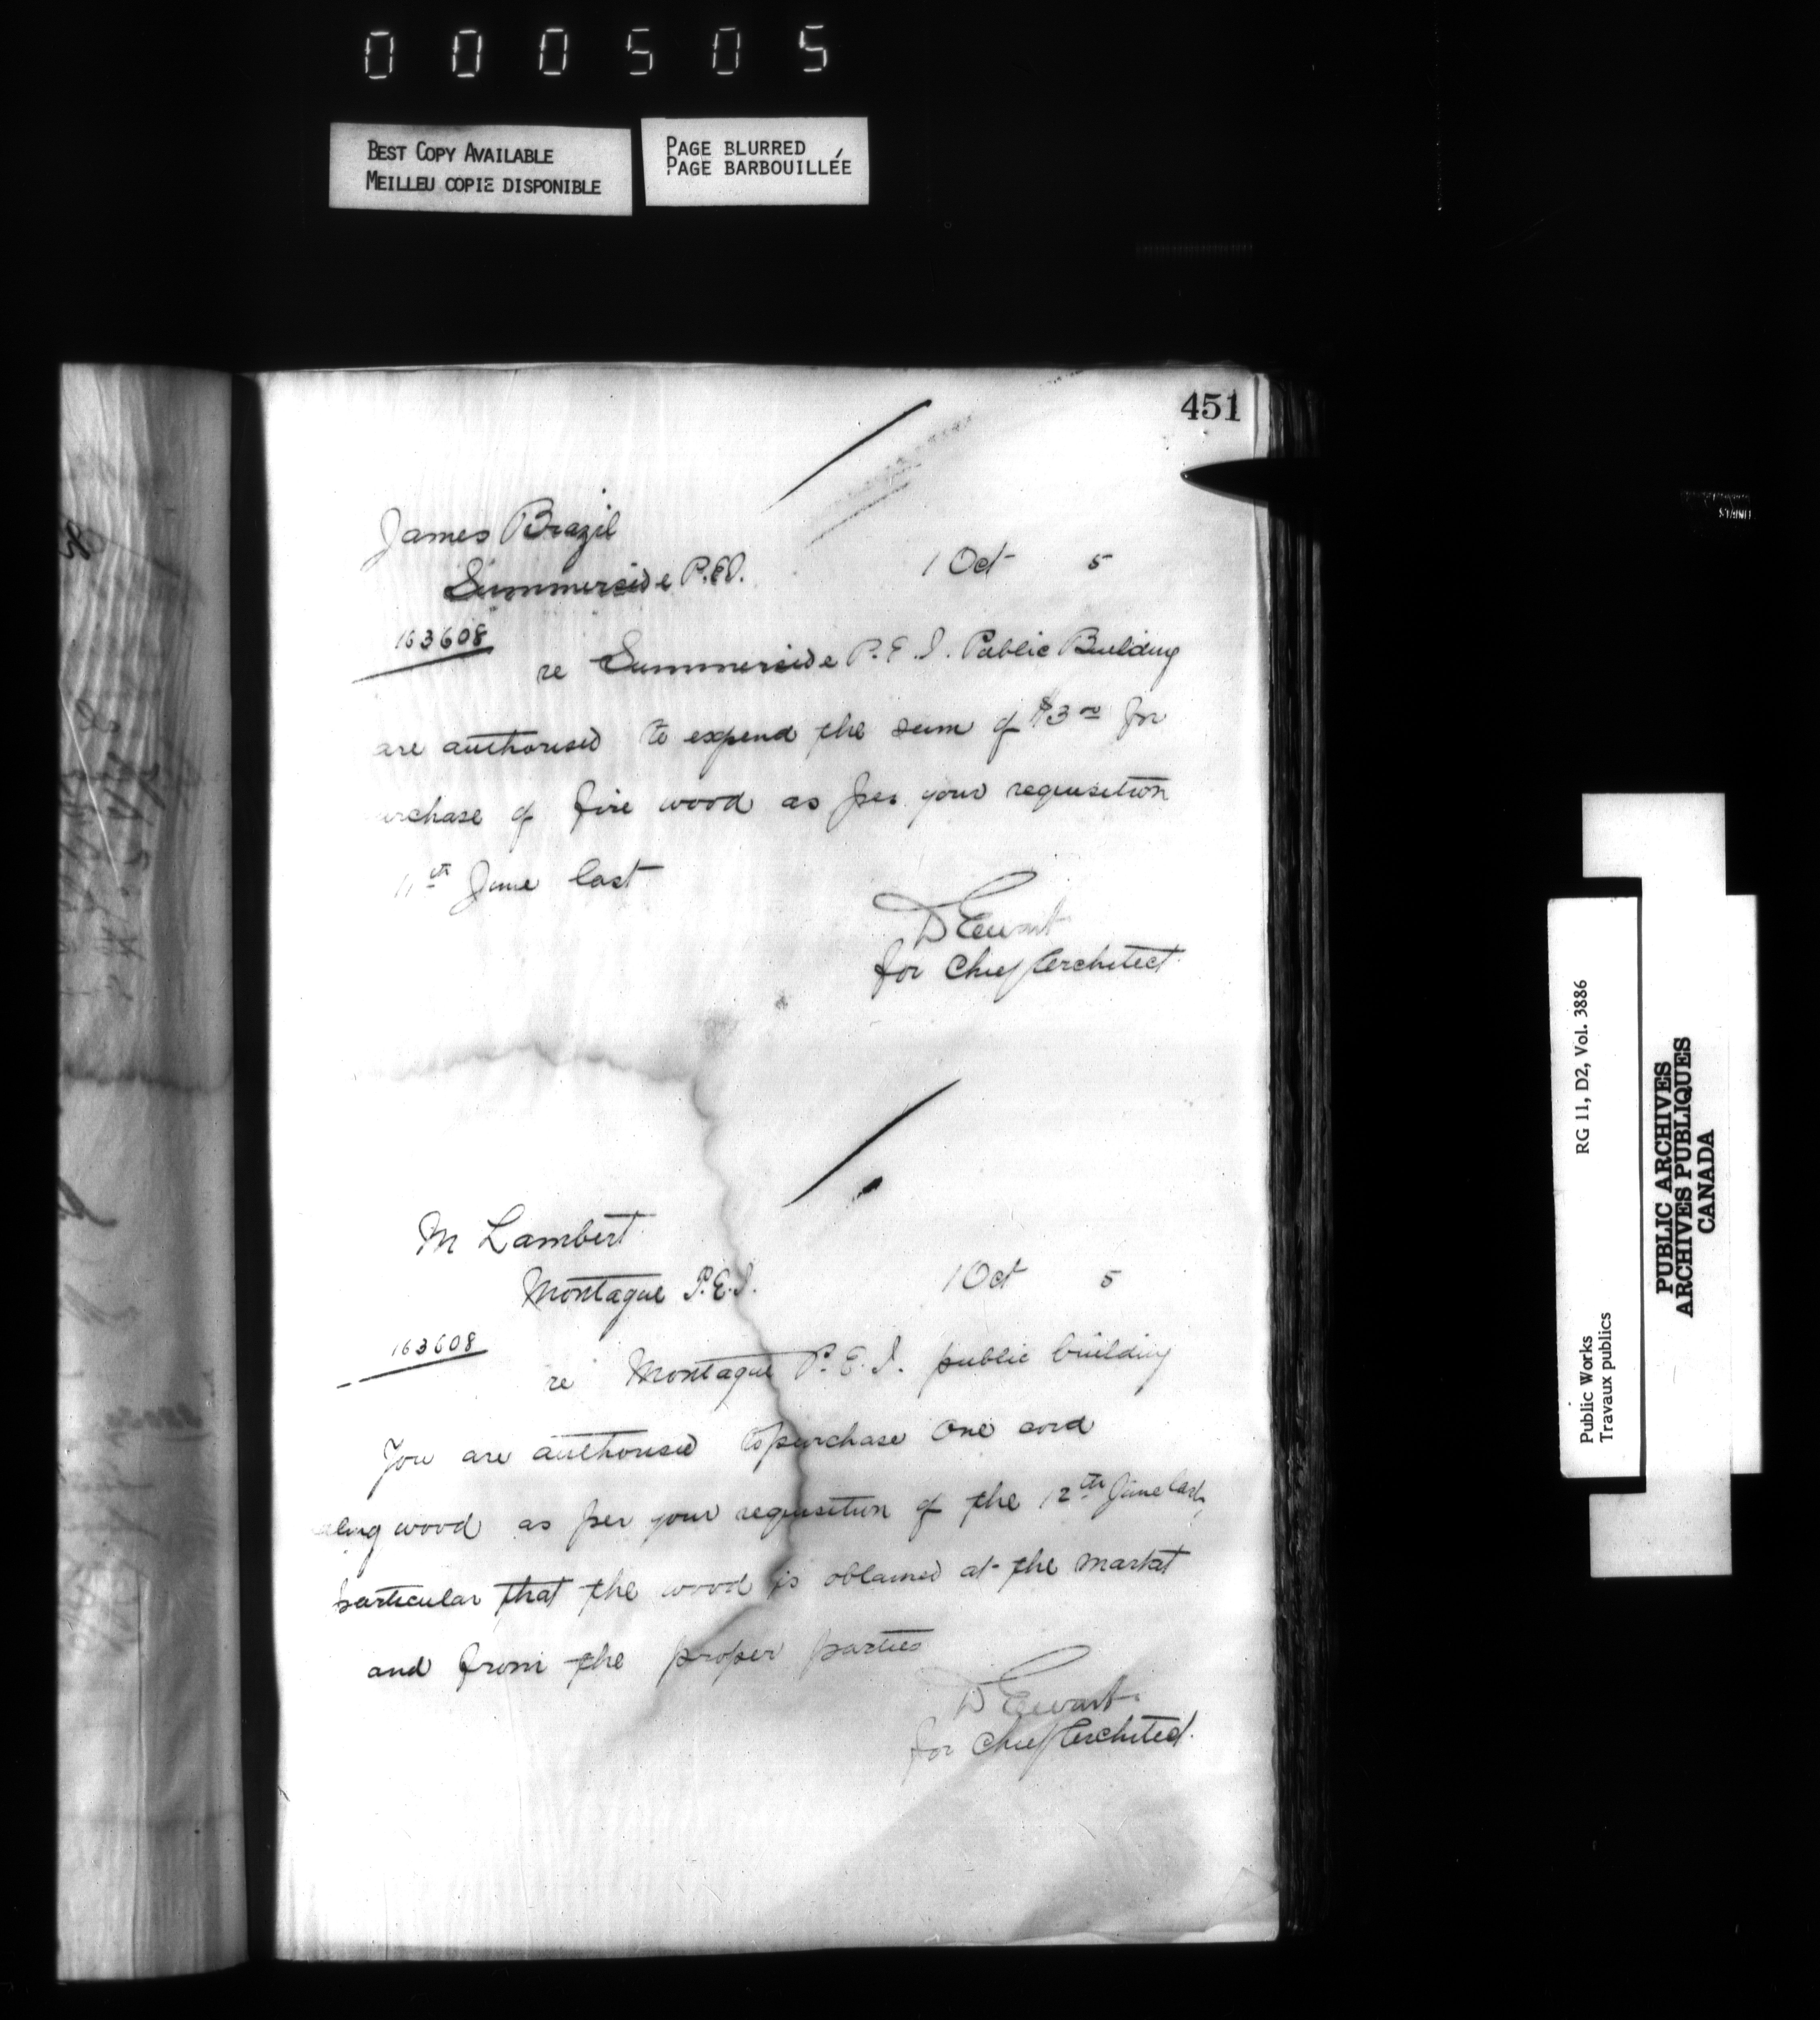 000505
BEST COPY AVAILABLE
MEILLEU COPIE DISPONIBLE
PAGE BLURRED
PAGE BARBOUILLÉE
451
James Brazil
Summerside P.E.I.
1 Oct 5
163608
re Summerside P.E.I. Public Building
are authorised to expend the sum of $3 00 for
urchase of fire wood as per your requisition
11th June last
D Ewart
for Chief Architect.
M Lambert
Montague P.E.I.
1 Oct 5
163608
re Montague P.E.I. public building
You are authorised to purchase one cord
wood as per your requisition of the 12th June last,
particular that the wood is obtained at the market
and from the proper parties
D Ewart.
for Chief Architect.
RG 11, D2, Vol. 3886
Public Works
Travaux publics
PUBLIC ARCHIVES
ARCHIVES PUBLIQUES
CANADA